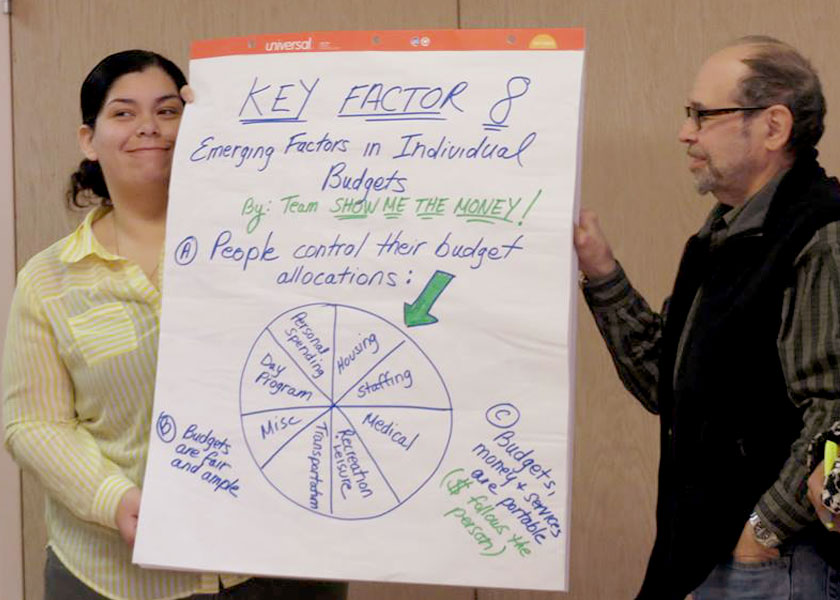 universal
KEY FACTOR 8
Emerging Factors in Individual
Budgets
By: Team SHOW ME THE MONEY!
(A) People control their budget
allocations:
Personal
Spending
Housing
Staffing
Medical
Recreation
Leisure
Transportation
Misc
Day
Program
(B) Budgets
are fair
and ample
(C) Budgets,
money + services
are portable
($ follows the
person)